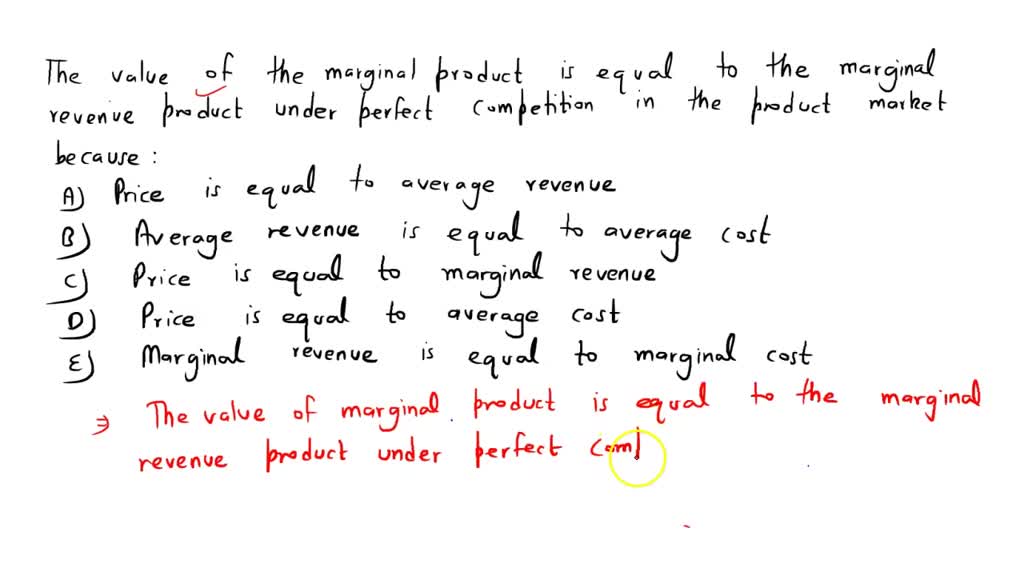 The value of the marginal product is equal to the marginal
revenue product under perfect competition in the product market
because :
A) Price is equal to average revenue
B) Average revenue is equal to average cost
C) Price is equal to marginal revenue
D) Price is equal to average cost
E) Marginal revenue is equal to marginal cost
⇒ The value of marginal product is equal to the marginal
revenue product under perfect com